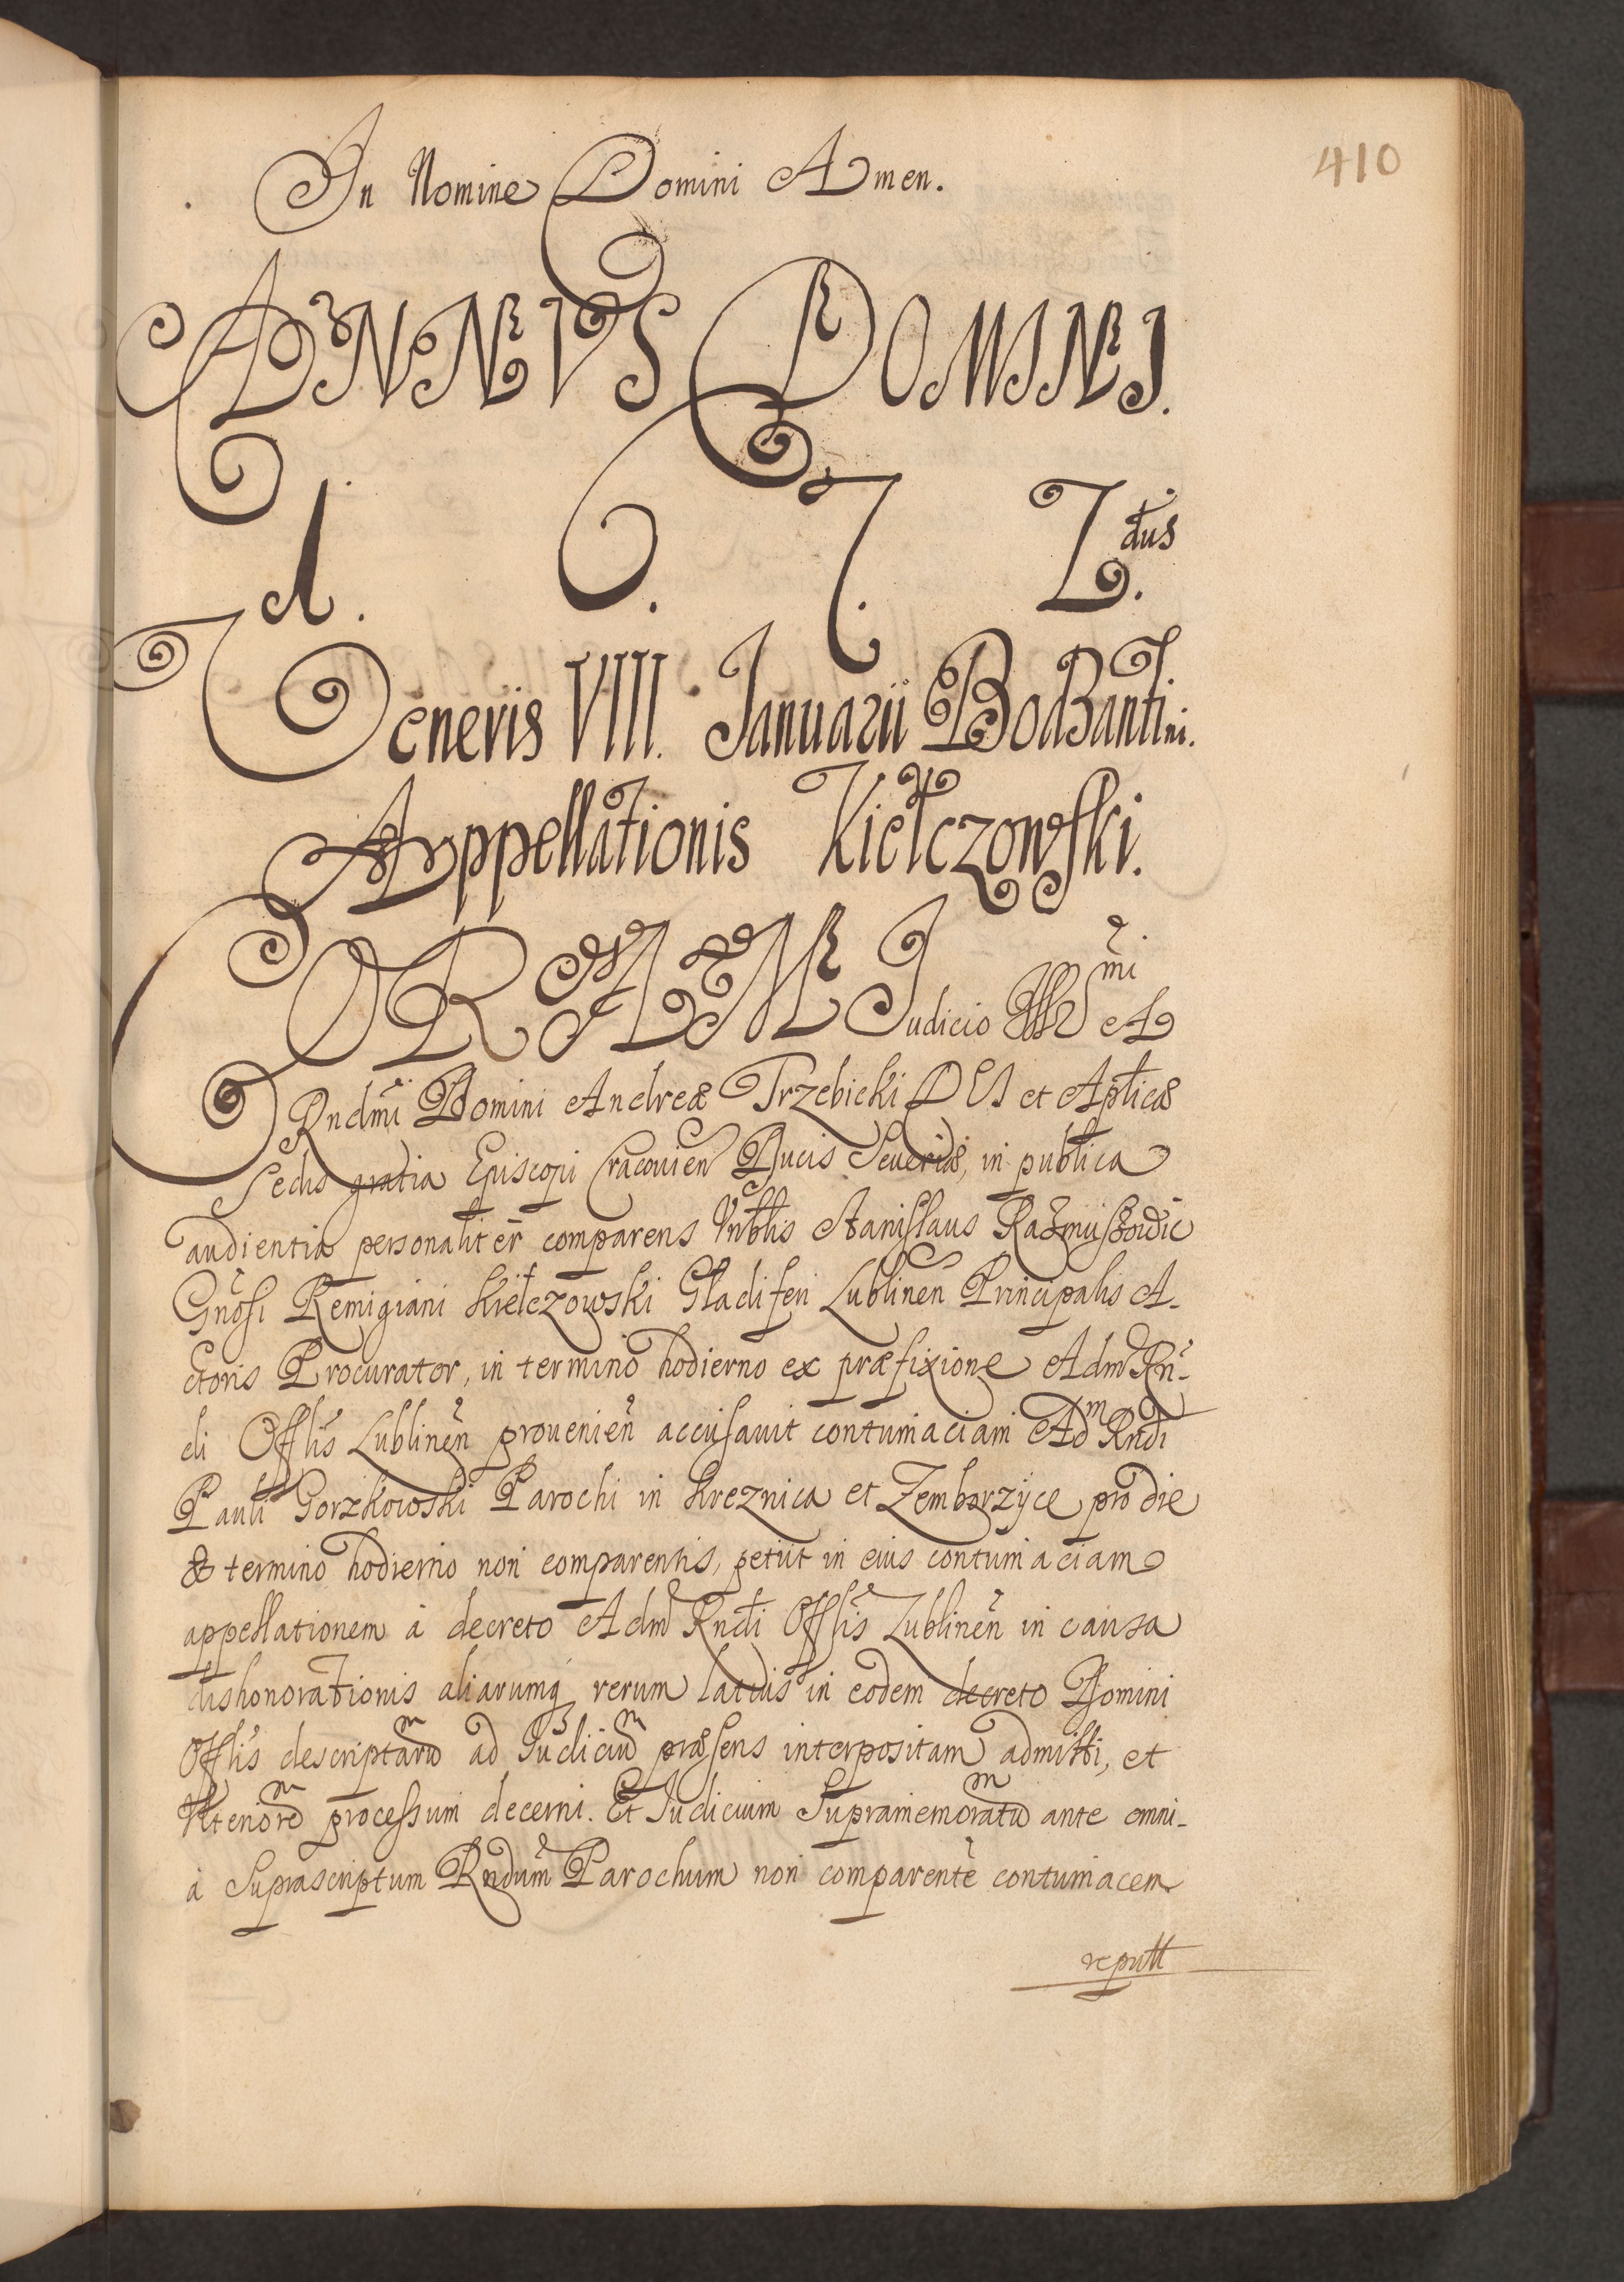 410
In Nomine Domini Amen.
ANNVS DOMINI.
1. 6. 7. 2dus.
Veneris VIII. Januarii Bodzantini.
Appellationis Kiełczowski.
CORAM Judicio Illmi A
Rndmi Domini Andreæ Trzebicki DEI et Apticæ
Sedis gratia Episcopi Cracouien Ducis Seueriæ, in publica
audientia personaliter comparens Nbtlis Stanislaus
Gnosi Remigiani Kiełczowski Gladiferi Lublinen Principalis A-
ctoris Procurator, in termino hodierno ex præfixione Adm Rn-
di Offlis Lublinen prouenien accusauit contumaciam Adm Rndi
Pauli Gorzkowski Parochi in Kreznica et Zemborzyce pro die
& termino hodierno non comparentis, petiit in eius contumaciam
appellationem à decreto Adm Rndi Offlis Lublinen in causa
dishonorationis aliarumq rerum latius in eodem decreto Domini
Offlis descriptarum ad Iudicium præsens interpositam admitti, et
Vlteriorem processum decerni. Et Iudicium Supramemoratum ante omni-
a Suprascriptum Rndum Parochum non comparente contumacem
reputt